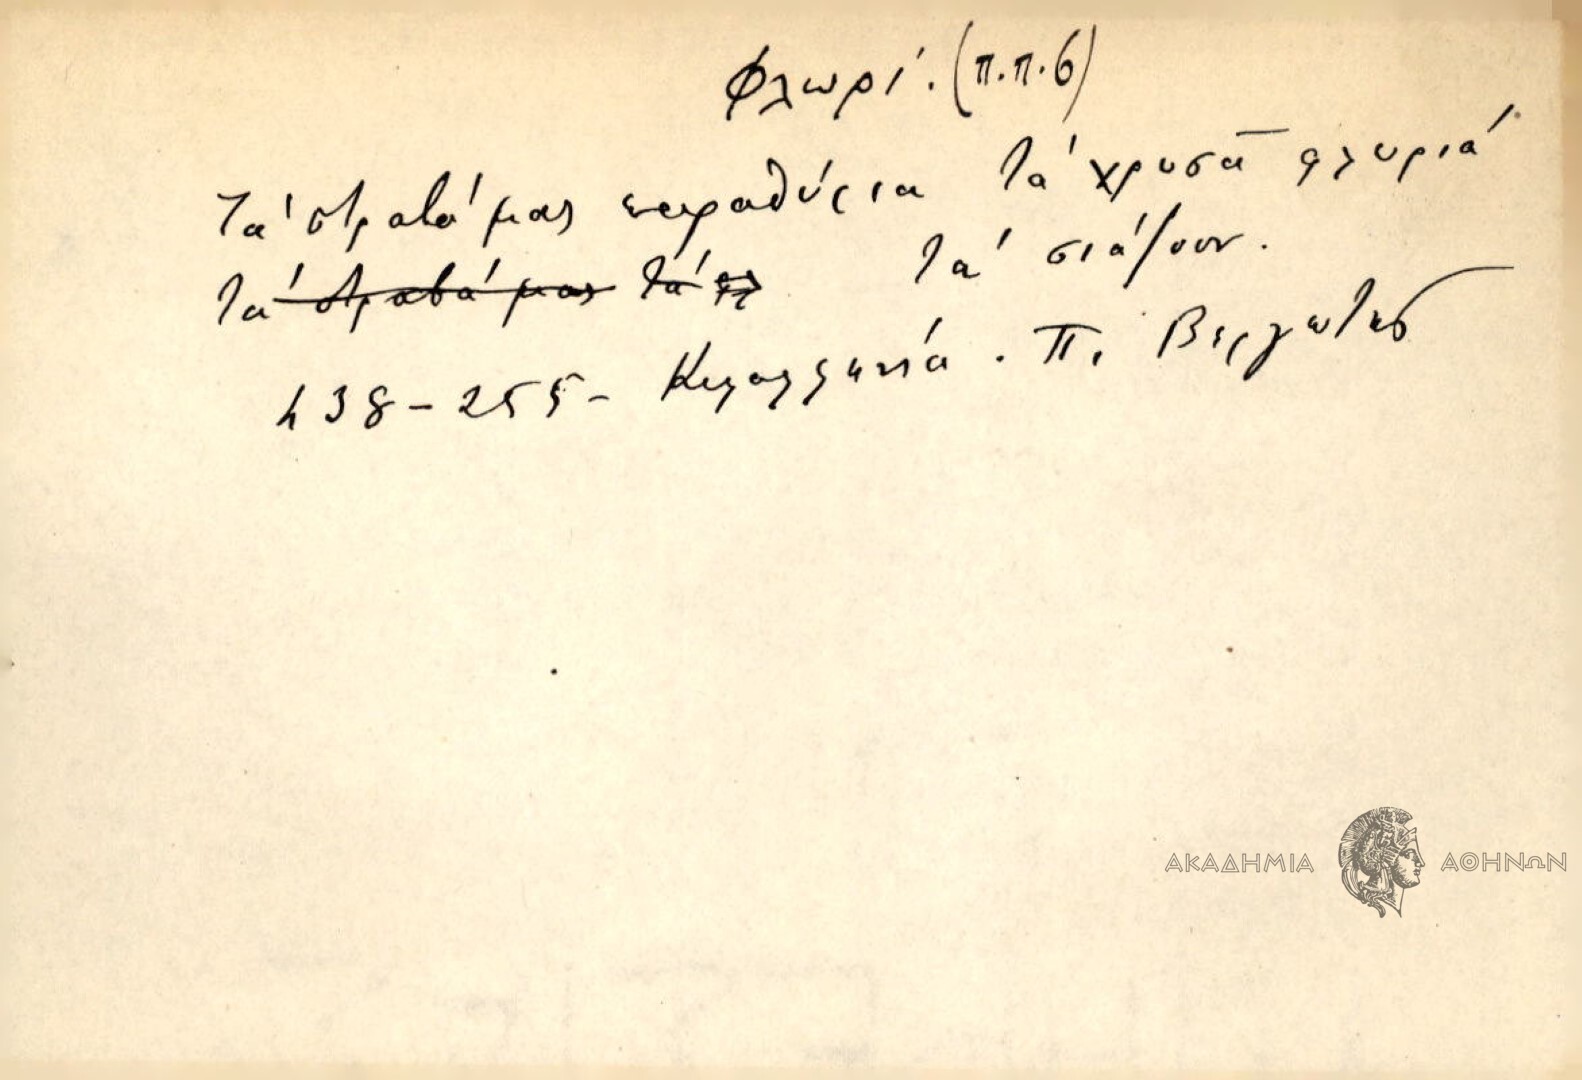 Φλωρί. (π.π.6)
Τά στραβά μας παραθύρια τά χρυσᾶ φλωριά
τά στραβά μας τά φλ τά σιάζουν.
438-255- Κεφαλληνία. Π. Βεργωτῆς
ΑΚΑΔΗΜΙΑ ΑΘΗΝΩΝ